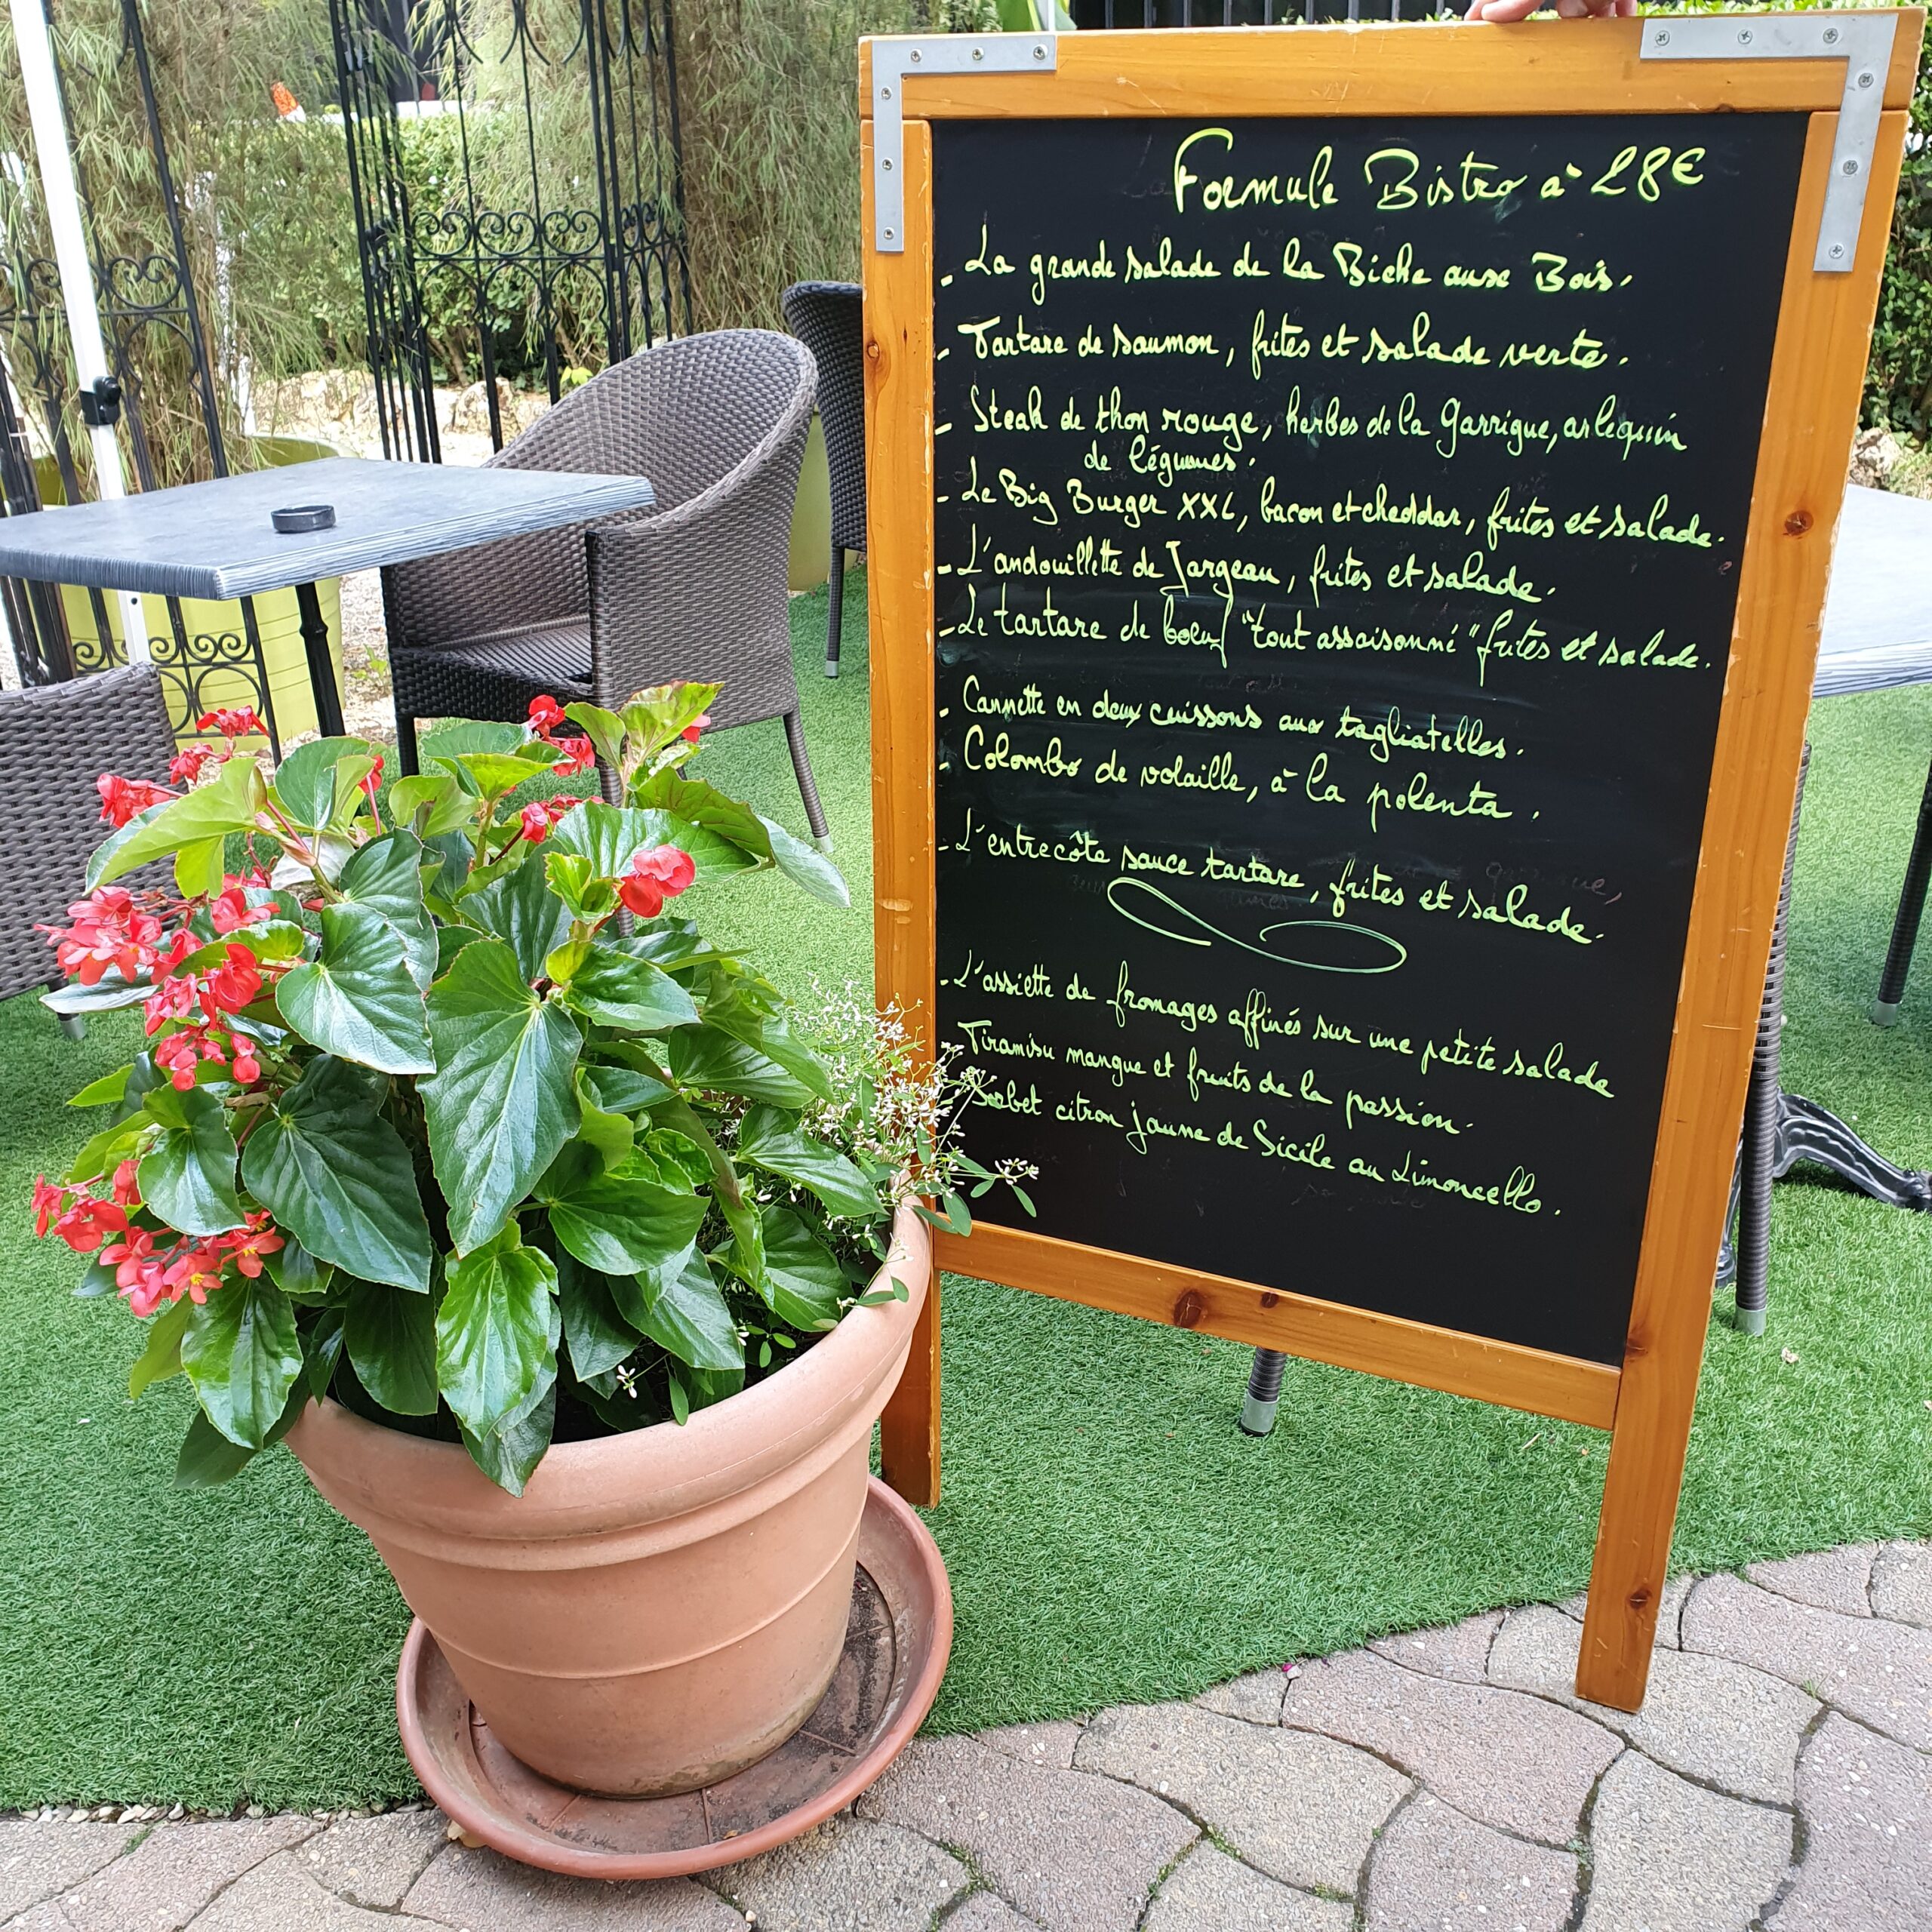 Formule Bistro à 28€
- La grande salade de la Biche aux Bois.
- Tartare de saumon, frites et salade verte.
- Steak de thon rouge, herbes de la Garrigue, arlequin
de légumes.
- Le Big Burger XXL, bacon et cheddar, frites et salade.
- L'andouillette de Jargeau, frites et salade.
- Le tartare de boeuf "tout assaisonné" frites et salade.
- Cannette en deux cuissons aux tagliatelles.
- Colombo de volaille, à la polenta.
- L'entrecôte sauce tartare, frites et salade.
- L'assiette de fromages affinés sur une petite salade
- Tiramisu mangue et fruits de la passion.
Sorbet citron jaune de Sicile au Limoncello.